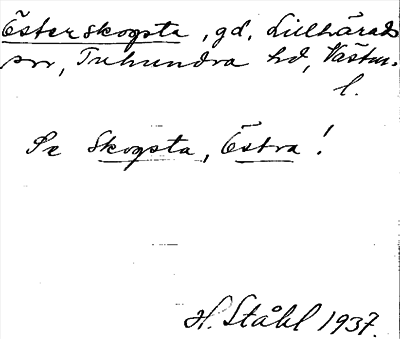 Österskogsta, gd, Lillhärads
sn, Tuhundra hd, Västm.
l.
Se Skogsta, Östra!
H. Ståhl 1937.